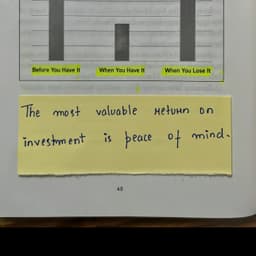 Before You Have It When You Have It When You Lose It
The most valuable return on
investment is peace of mind.